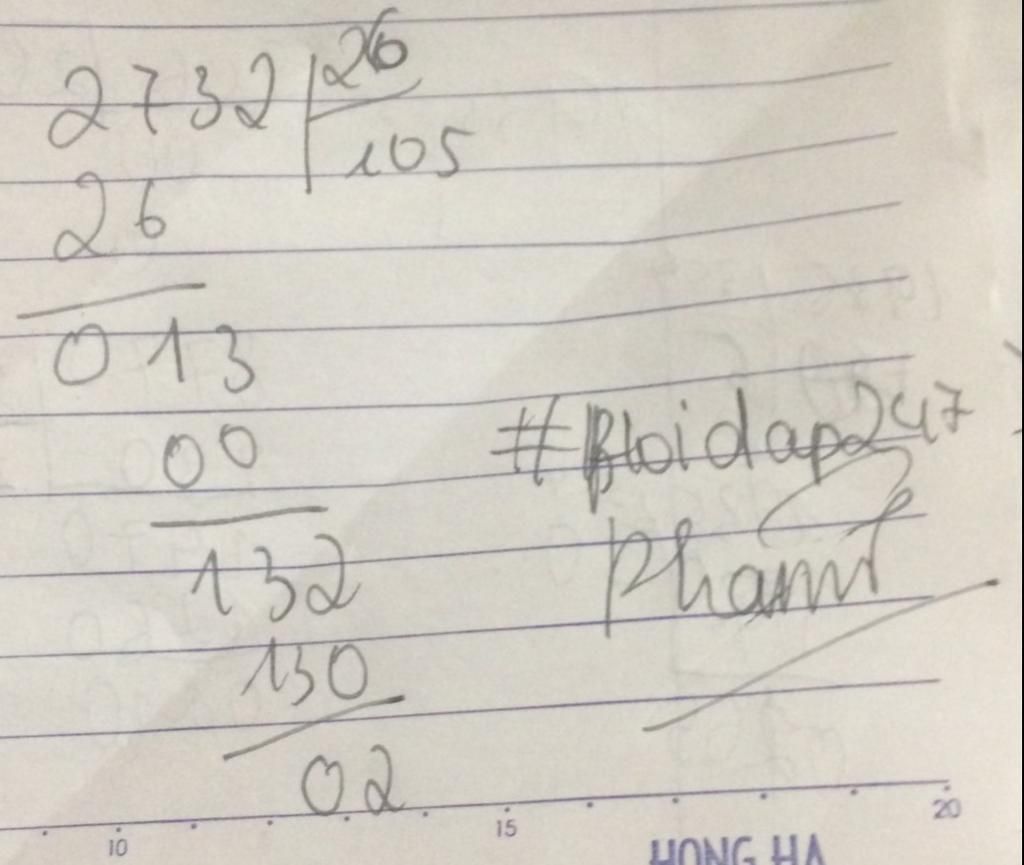 2732 26
105
26
013
00
132
130
02
#Hoidap247
10 15 20
HONG HA